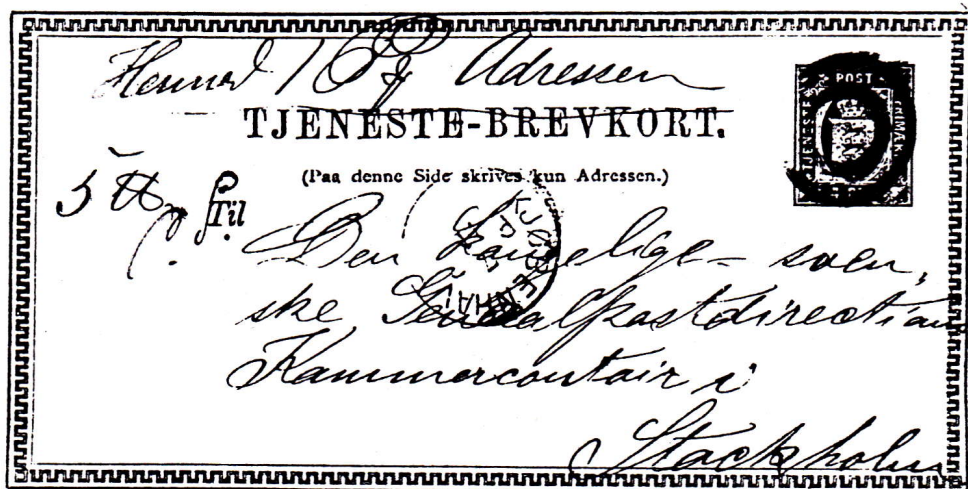 Hermed 16 Adressen
TJENESTE-BREVKORT.
(Paa denne Side skrives kun Adressen.)
5
Til
Den Kongelige-sven,
ske Generalpostdirection
Kammercontoir i
Stockholm
TJENESTE POST